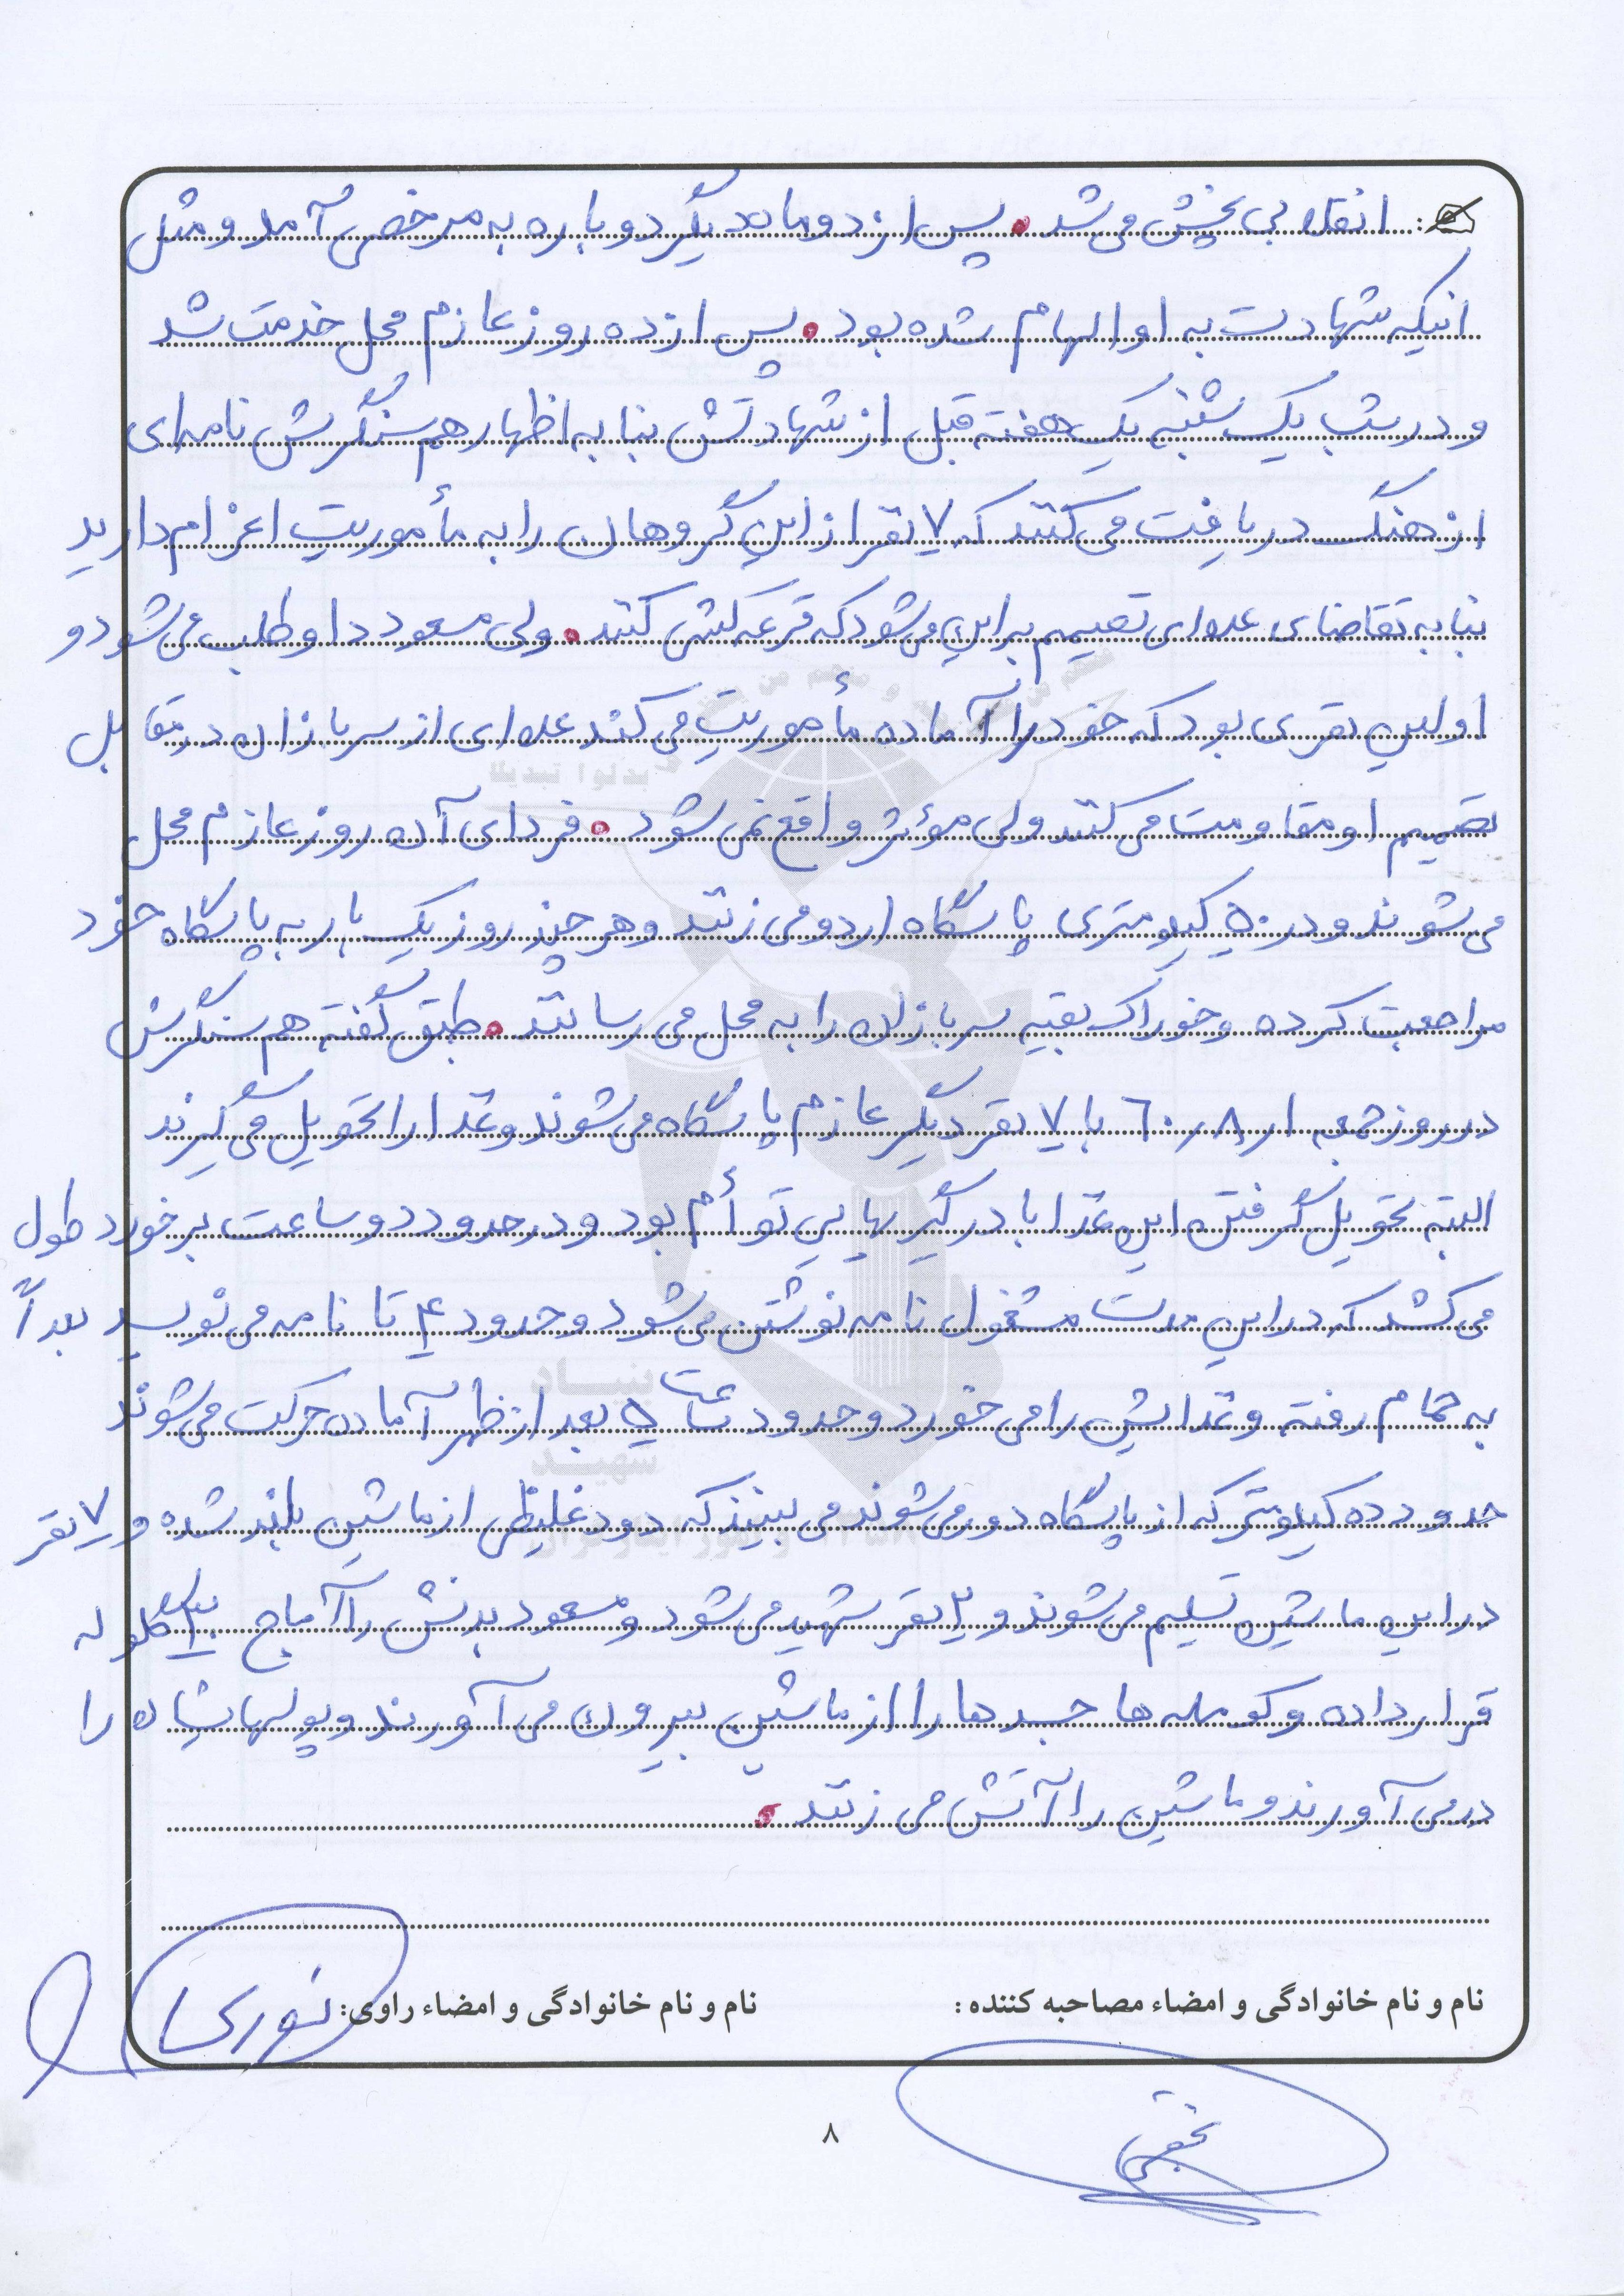 انقلابی پخش می‌شد. پس از دو ماه دیگر دوباره به مرخصی آمد و مثل
اینکه شهادت به او الهام شده بود. پس از ده روز عازم محل خدمت شد
و در شب یک شنبه یک هفته قبل از شهادتش بنا به اظهار هم سنگرش نامه‌ای
از هنگ دریافت می‌کنند که ۷ نفر از این گروهان را به مأموریت اعزام دارید
بنا به تقاضای عده‌ای تصمیم بر این می‌شود که قرعه کشی کنند. ولی مسعود داوطلب می‌شود و
اولین نفری بود که خود را آماده مأموریت می‌کند عده‌ای از سربازان در مقابل
تصمیم او مقاومت می‌کنند ولی مؤثر واقع نمی‌شود. فردای آن روز عازم محل
می‌شوند و در ۵۰ کیلومتری پاسگاه اردو می‌زنند و هر چند روز یک بار به پاسگاه خود
مراجعت کرده و خوراک بقیه سربازان را به محل می‌رسانند. طبق گفته هم سنگرش
در روز جمعه ۶۰/۸/۱ با ۷ نفر دیگر عازم پاسگاه می‌شوند و غذا را تحویل می‌گیرند
البته تحویل گرفتن این غذا با درگیریهایی توأم بود و در حدود دو ساعت برخورد طول
می‌کشد که در این مدت مشغول نامه نوشتن می‌شود و حدود ۴ تا نامه می‌نویسد بعداً
به حمام رفته و غذایش را می‌خورد و حدود ساعت ۵ بعد از ظهر آماده حرکت می‌شوند
حدود ده کیلومتر که از پاسگاه دور می‌شوند می‌بینند که دود غلیظی از ماشین بلند شده و ۷ نفر
در این ماشین تسلیم می‌شوند و ۲ نفر شهید می‌شود و مسعود بدنش را آماج گلوله
قرار داده و کومله‌ها جسدها را از ماشین بیرون می‌آورند و پولهایشان را
در می‌آورند و ماشین را آتش می‌زنند.
نام و نام خانوادگی و امضاء مصاحبه کننده: نام و نام خانوادگی و امضاء راوی: نوری
نجفی
۸
بنیاد
شهید